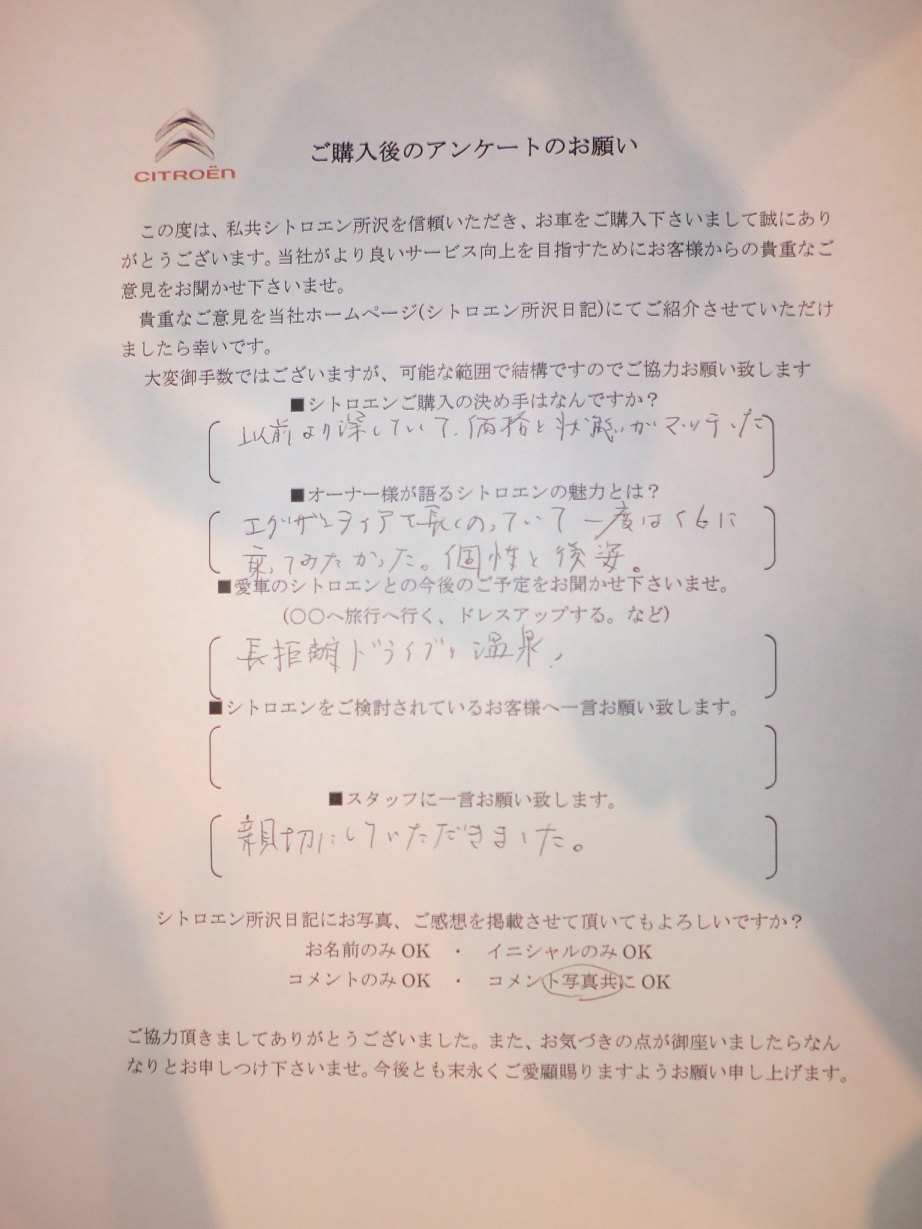 CITROËN
ご購入後のアンケートのお願い
この度は、私共シトロエン所沢を信頼いただき、お車をご購入下さいまして誠にあり
がとうございます。当社がより良いサービス向上を目指すためにお客様からの貴重なご
意見をお聞かせ下さいませ。
貴重なご意見を当社ホームページ(シトロエン所沢日記)にてご紹介させていただけ
ましたら幸いです。
大変御手数ではございますが、可能な範囲で結構ですのでご協力お願い致します
■シトロエンご購入の決め手はなんですか?
以前より探していて、価格と状態がマッチした
■オーナー様が語るシトロエンの魅力とは?
エグザンティアを長くのっていて一度はC6に
乗ってみたかった。個性と後姿。
■愛車のシトロエンとの今後のご予定をお聞かせ下さいませ。
(〇〇へ旅行へ行く、ドレスアップする。など)
長距離ドライブと温泉!
■シトロエンをご検討されているお客様へ一言お願い致します。
■スタッフに一言お願い致します。
親切にしていただきました。
シトロエン所沢日記にお写真、ご感想を掲載させて頂いてもよろしいですか?
お名前のみ OK ・ イニシャルのみ OK
コメントのみ OK ・ コメント写真共に OK
ご協力頂きましてありがとうございました。また、お気づきの点が御座いましたらなん
なりとお申しつけ下さいませ。今後とも末永くご愛顧賜りますようお願い申し上げます。